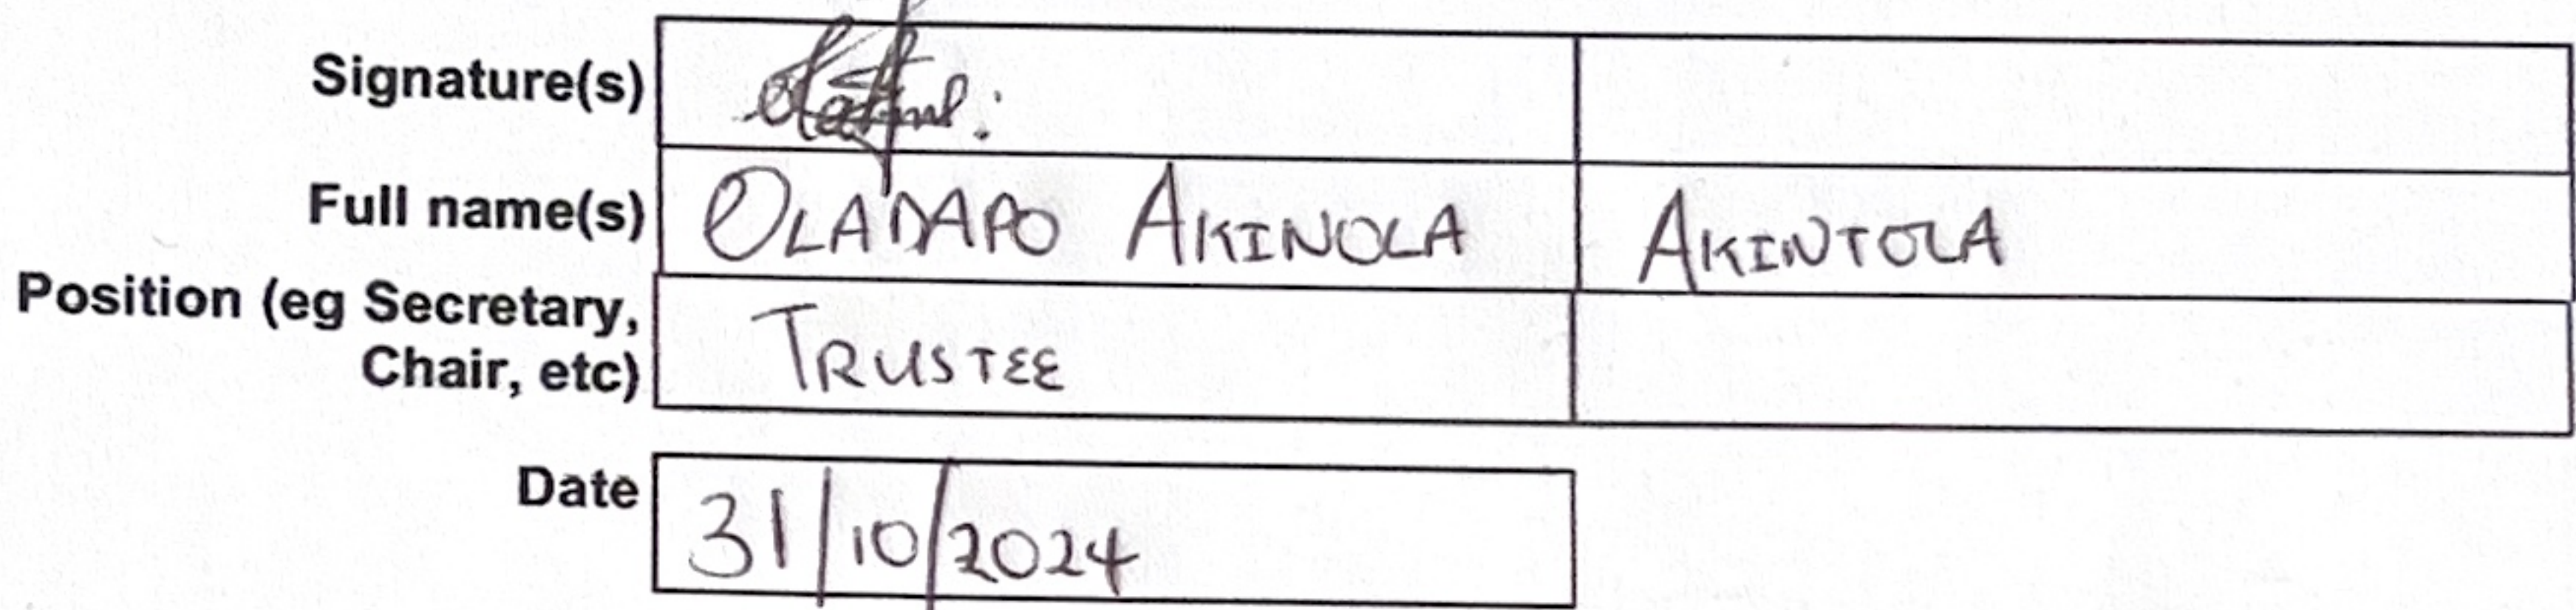 Signature(s)
Full name(s) OLADAPO AKINOLA AKINTOLA
Position (eg Secretary,
Chair, etc) TRUSTEE
Date 31/10/2024